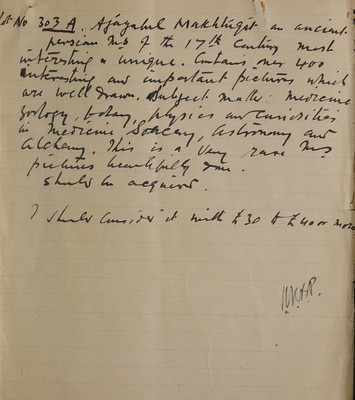 Lot No 303 A. Ajayabul Makhlugat an ancient
persian ms of the 17th Century most
interesting & unique. Contains over 400
interesting and important pictures which
are well drawn. Subject matter: medicine
Zoology, botany, physics and curiosities
in medicine Sorcery, astronomy and
alchemy. This is a very rare ms
pictures beautifully done.
should be acquired.
I should consider it worth £30 to £40 or more